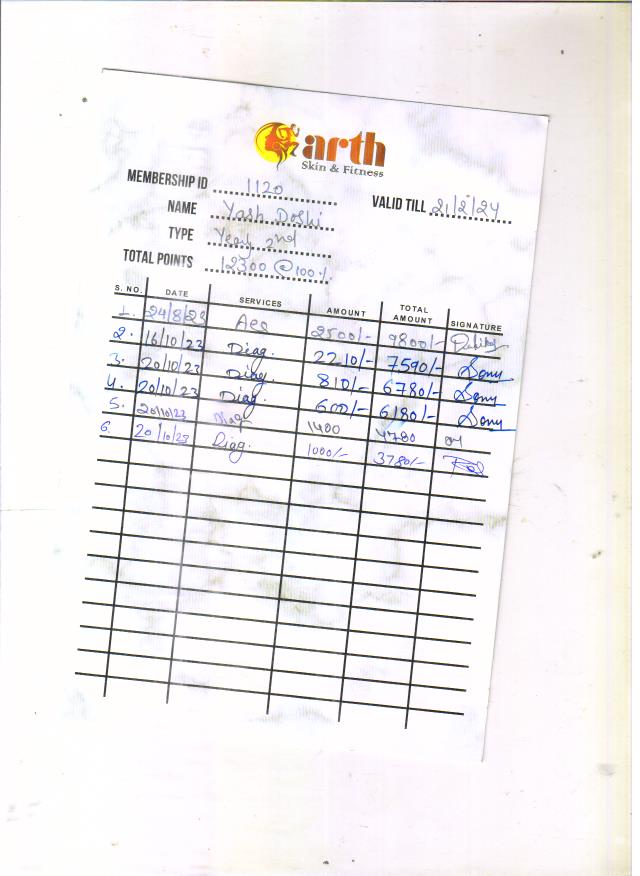 arth
Skin & Fitness
MEMBERSHIP ID 1120
VALID TILL 21/2/24
NAME Yash Doshi
TYPE Year 2nd
TOTAL POINTS 12300 @ 100%.
S. NO. DATE SERVICES AMOUNT TOTAL AMOUNT SIGNATURE
1. 24/8/23 Aes 2500/- 9800/-
2. 16/10/23 Diag. 2210/- 7590/- Sony
3. 20/10/23 Diag. 810/- 6780/- Sony
4. 20/10/23 Diag. 600/- 6180/- Sony
5. 20/10/23 1400 4780
6. 20/10/23 Diag. 1000/- 3780/-